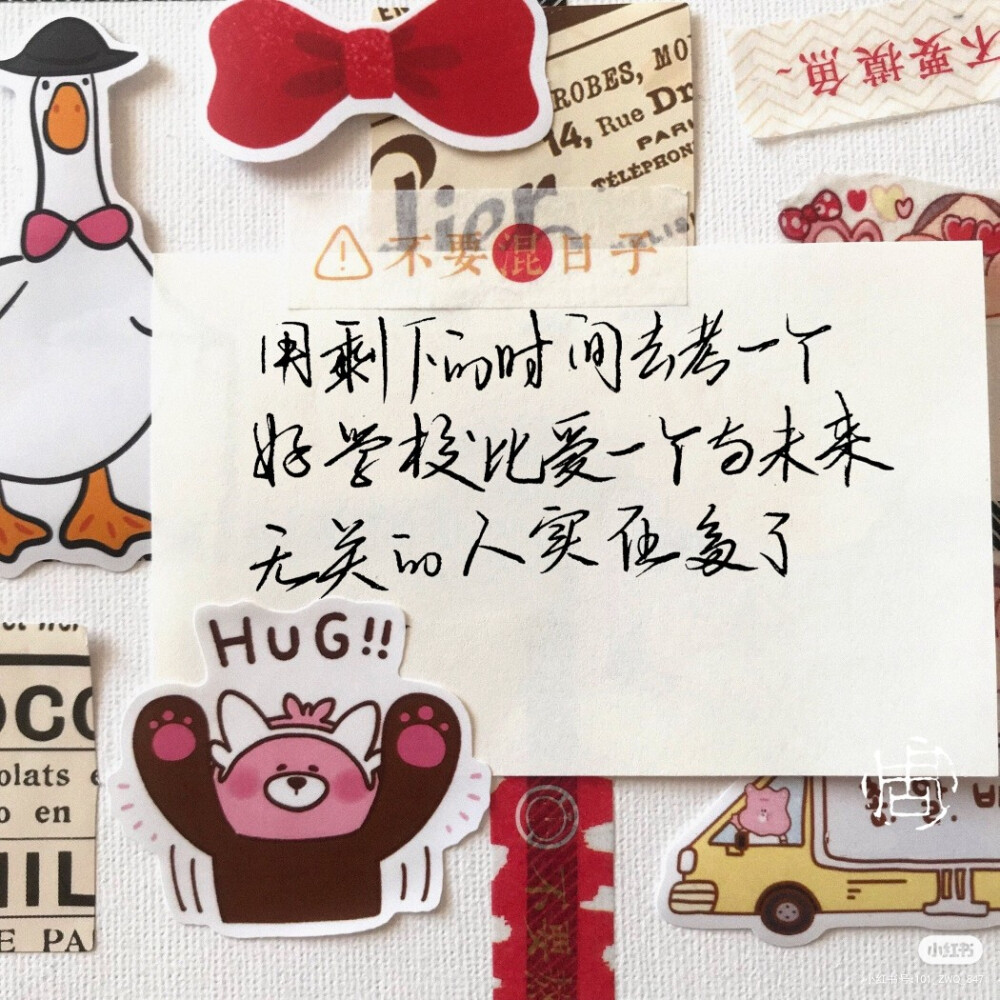 不要摸魚~
ROBES, MO
14, Rue Dr
PARI
TÉLÉPHON
不要混日子
用剩下的时间去考一个
好学校比爱一个与未来
无关的人实在多了
HUG!!
OCO
olats e
o en
HIL
E PA
不要
小红书